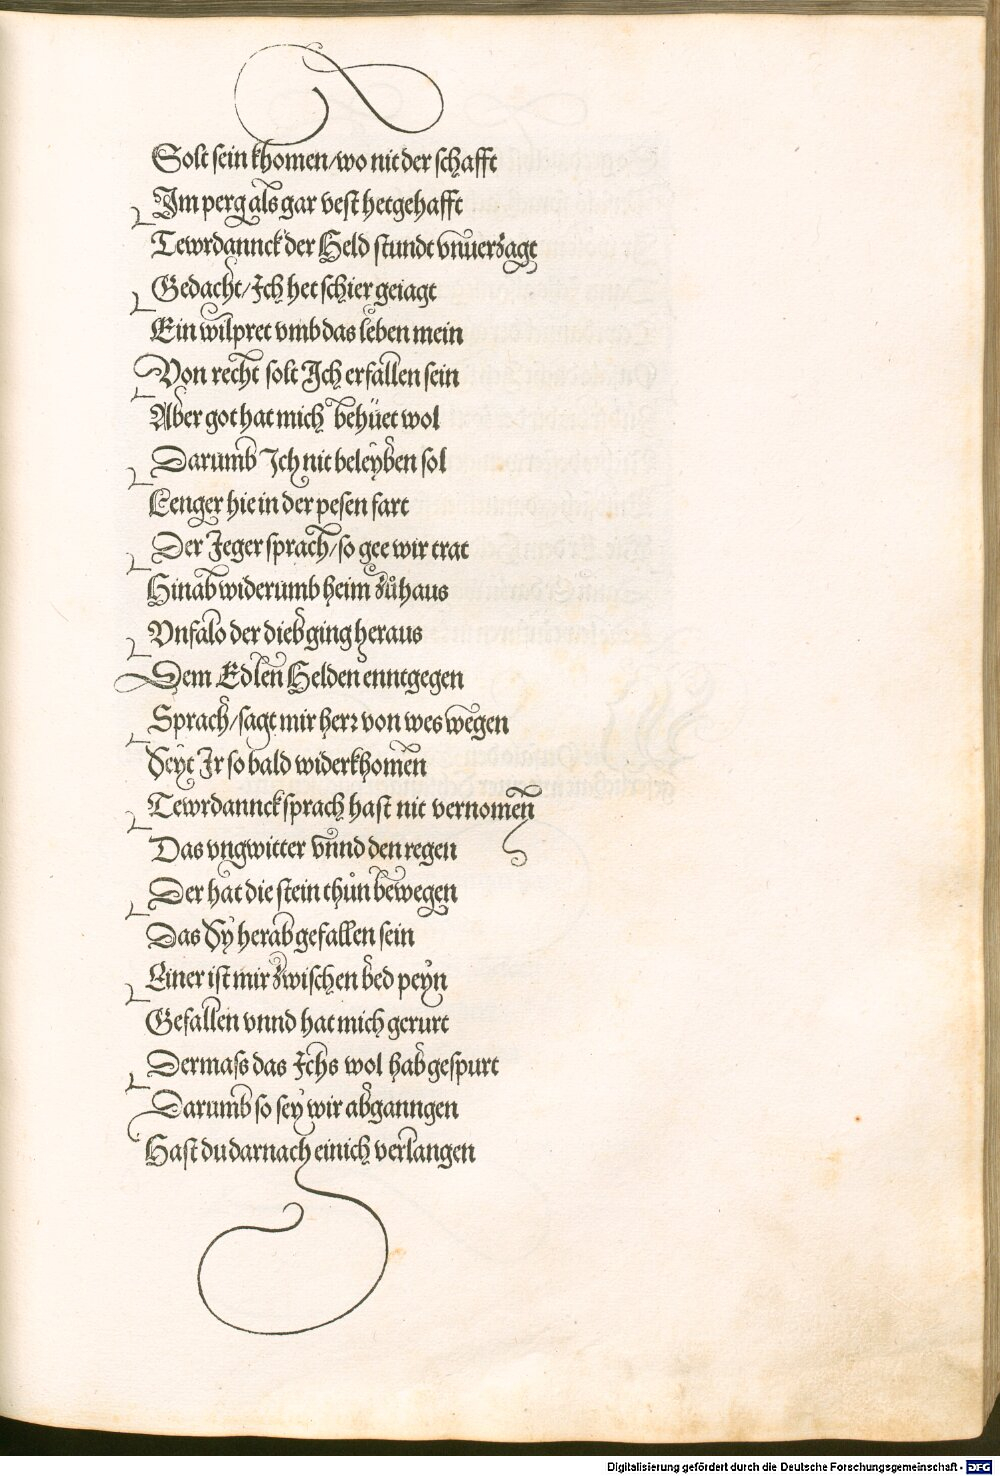 Solt sein khomen/wo nit der schafft
Im perg als gar vest het gehafft
Tewrdannck der Held stundt vnuerzagt
Gedacht/Ich het schier geiagt
Ein wilpret vmb das leben mein
Von recht solt Ich erfallen sein
Aber got hat mich behüet wol
Darumb Ich nit beleyben sol
Lenger hie in der pesen fart
Der Jeger sprach/so gee wir trat
Hinab widerumb heim zů haus
Vnfalo der dieb ging heraus
Dem Edlen Helden enntgegen
Sprach/sagt mir herr von wes wegen
Seyt Ir so bald widerkhomen
Tewrdannck sprach hast nit vernomen
Das vngwitter vnnd den regen
Der hat die stein thůn bewegen
Das Sy herab gefallen sein
Einer ist mir zwischen bed peyn
Gefallen vnnd hat mich gerurt
Dermass das Ichs wol hab gespurt
Darumb so sey wir abganngen
Hast du darnach einich verlangen
Digitalisierung gefördert durch die Deutsche Forschungsgemeinschaft - DFG